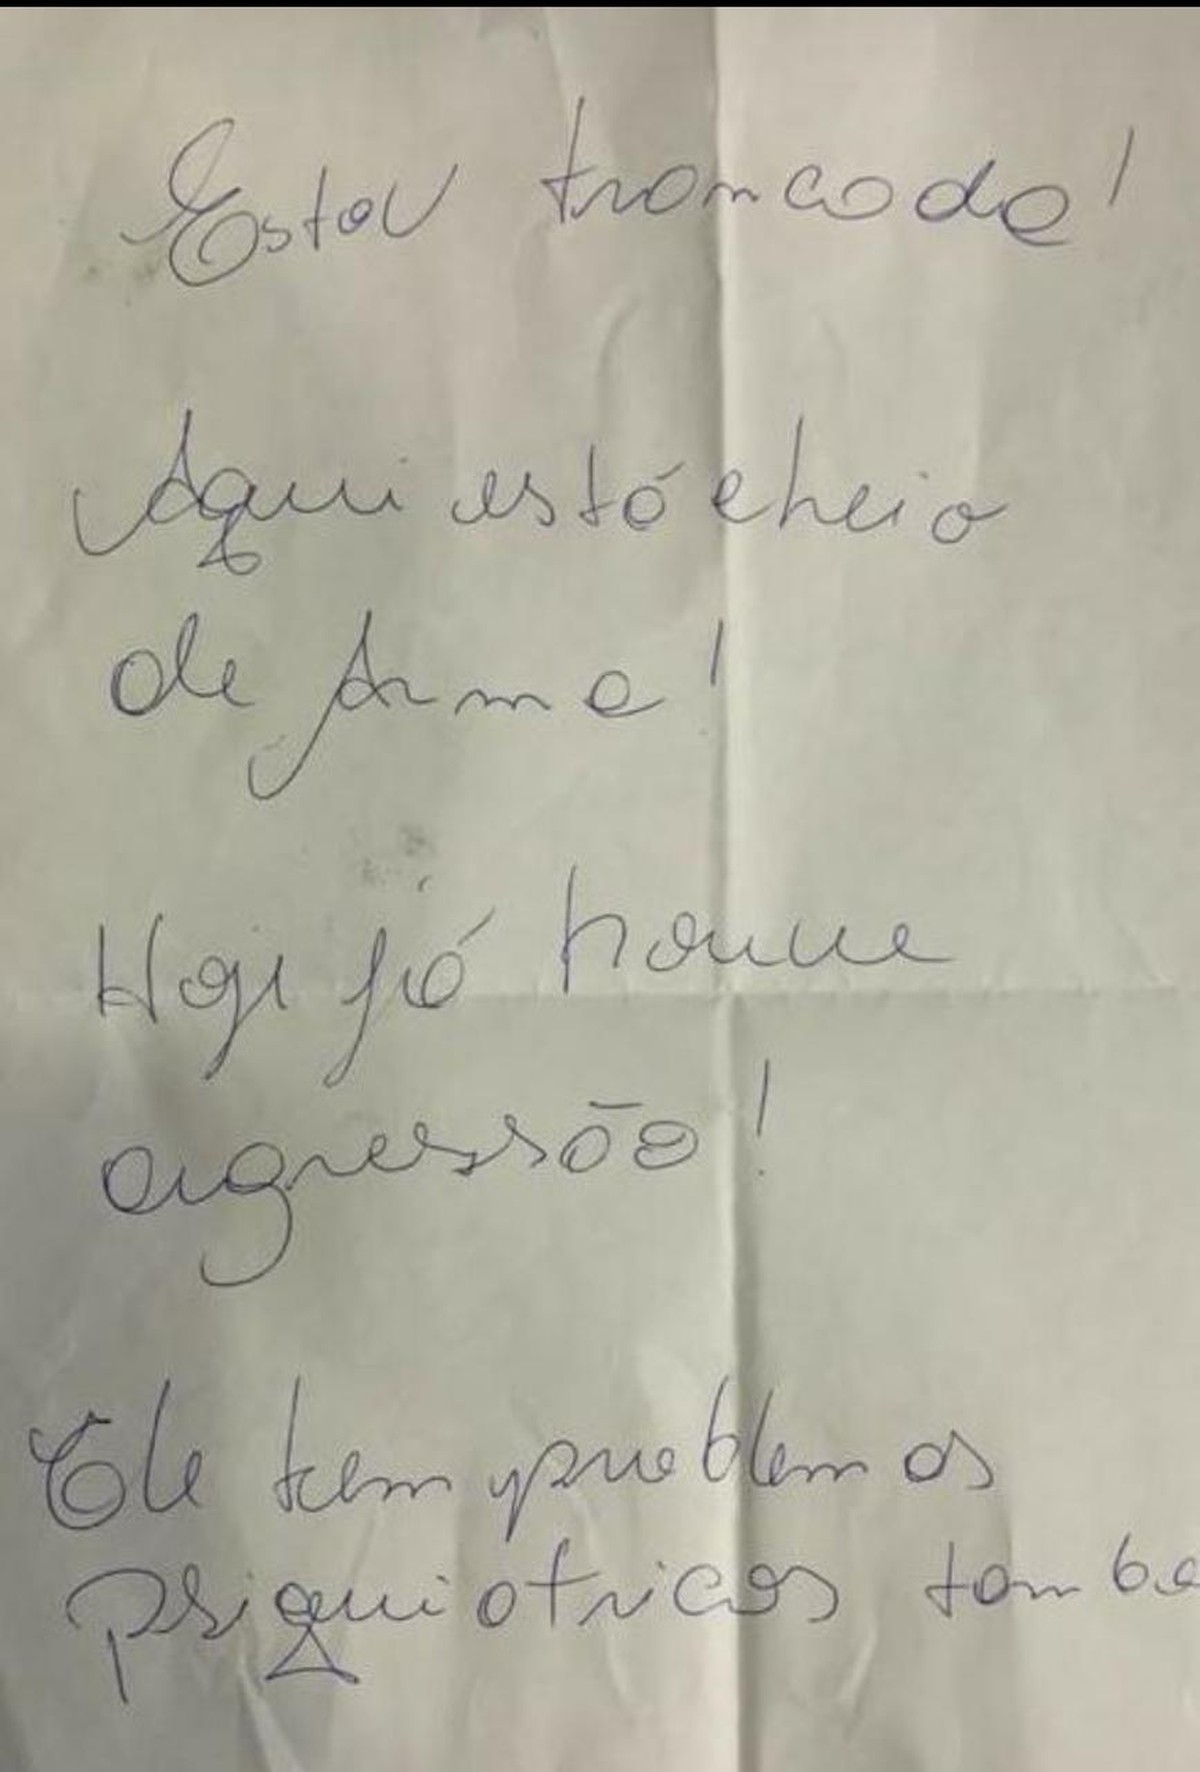 Estou trancada!
Aqui está cheio
de Arma!
Hoje já houve
agressão!
Ele tem problemas
psiquiatricos tambe